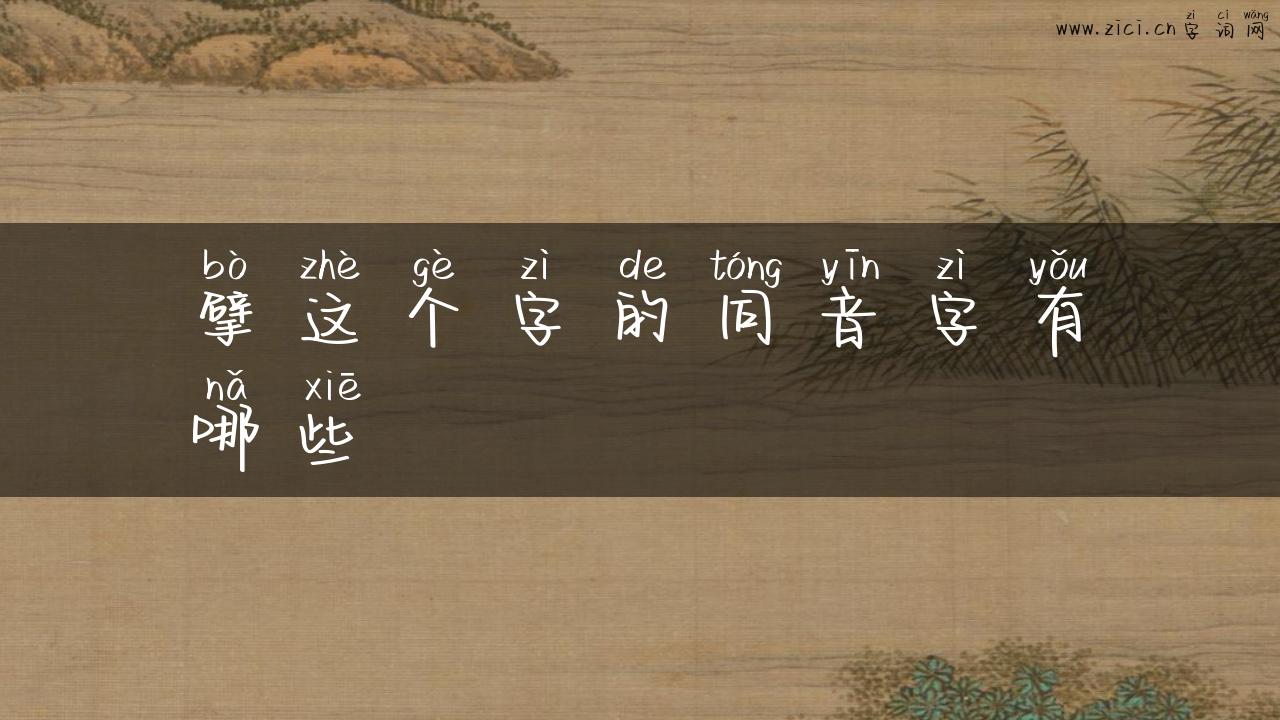 zì cí wǎng
www.zici.cn 字词网
bò zhè gè zì de tóng yīn zì yǒu
擘这个字的同音字有
nǎ xiē
哪些